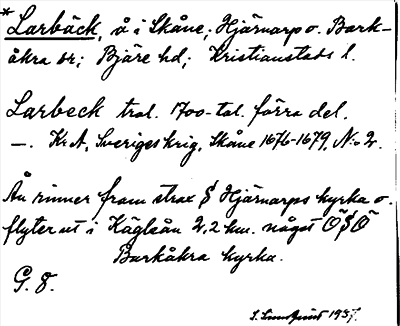 * Larbäck, å i Skåne; Hjärnarp o. Bark-
åkra sr; Bjäre hd; Kristianstads l.
Larbeck trol. 1700-tal. förra del.
—. Kr. A, Sveriges krig, Skåne 1676-1679, N:o 2.
Ån rinner fram strax S Hjärnarps kyrka o.
flyter ut i Käglaån 2,2 km. något ÖSÖ
Barkåkra kyrka.
G. 8.
1937.